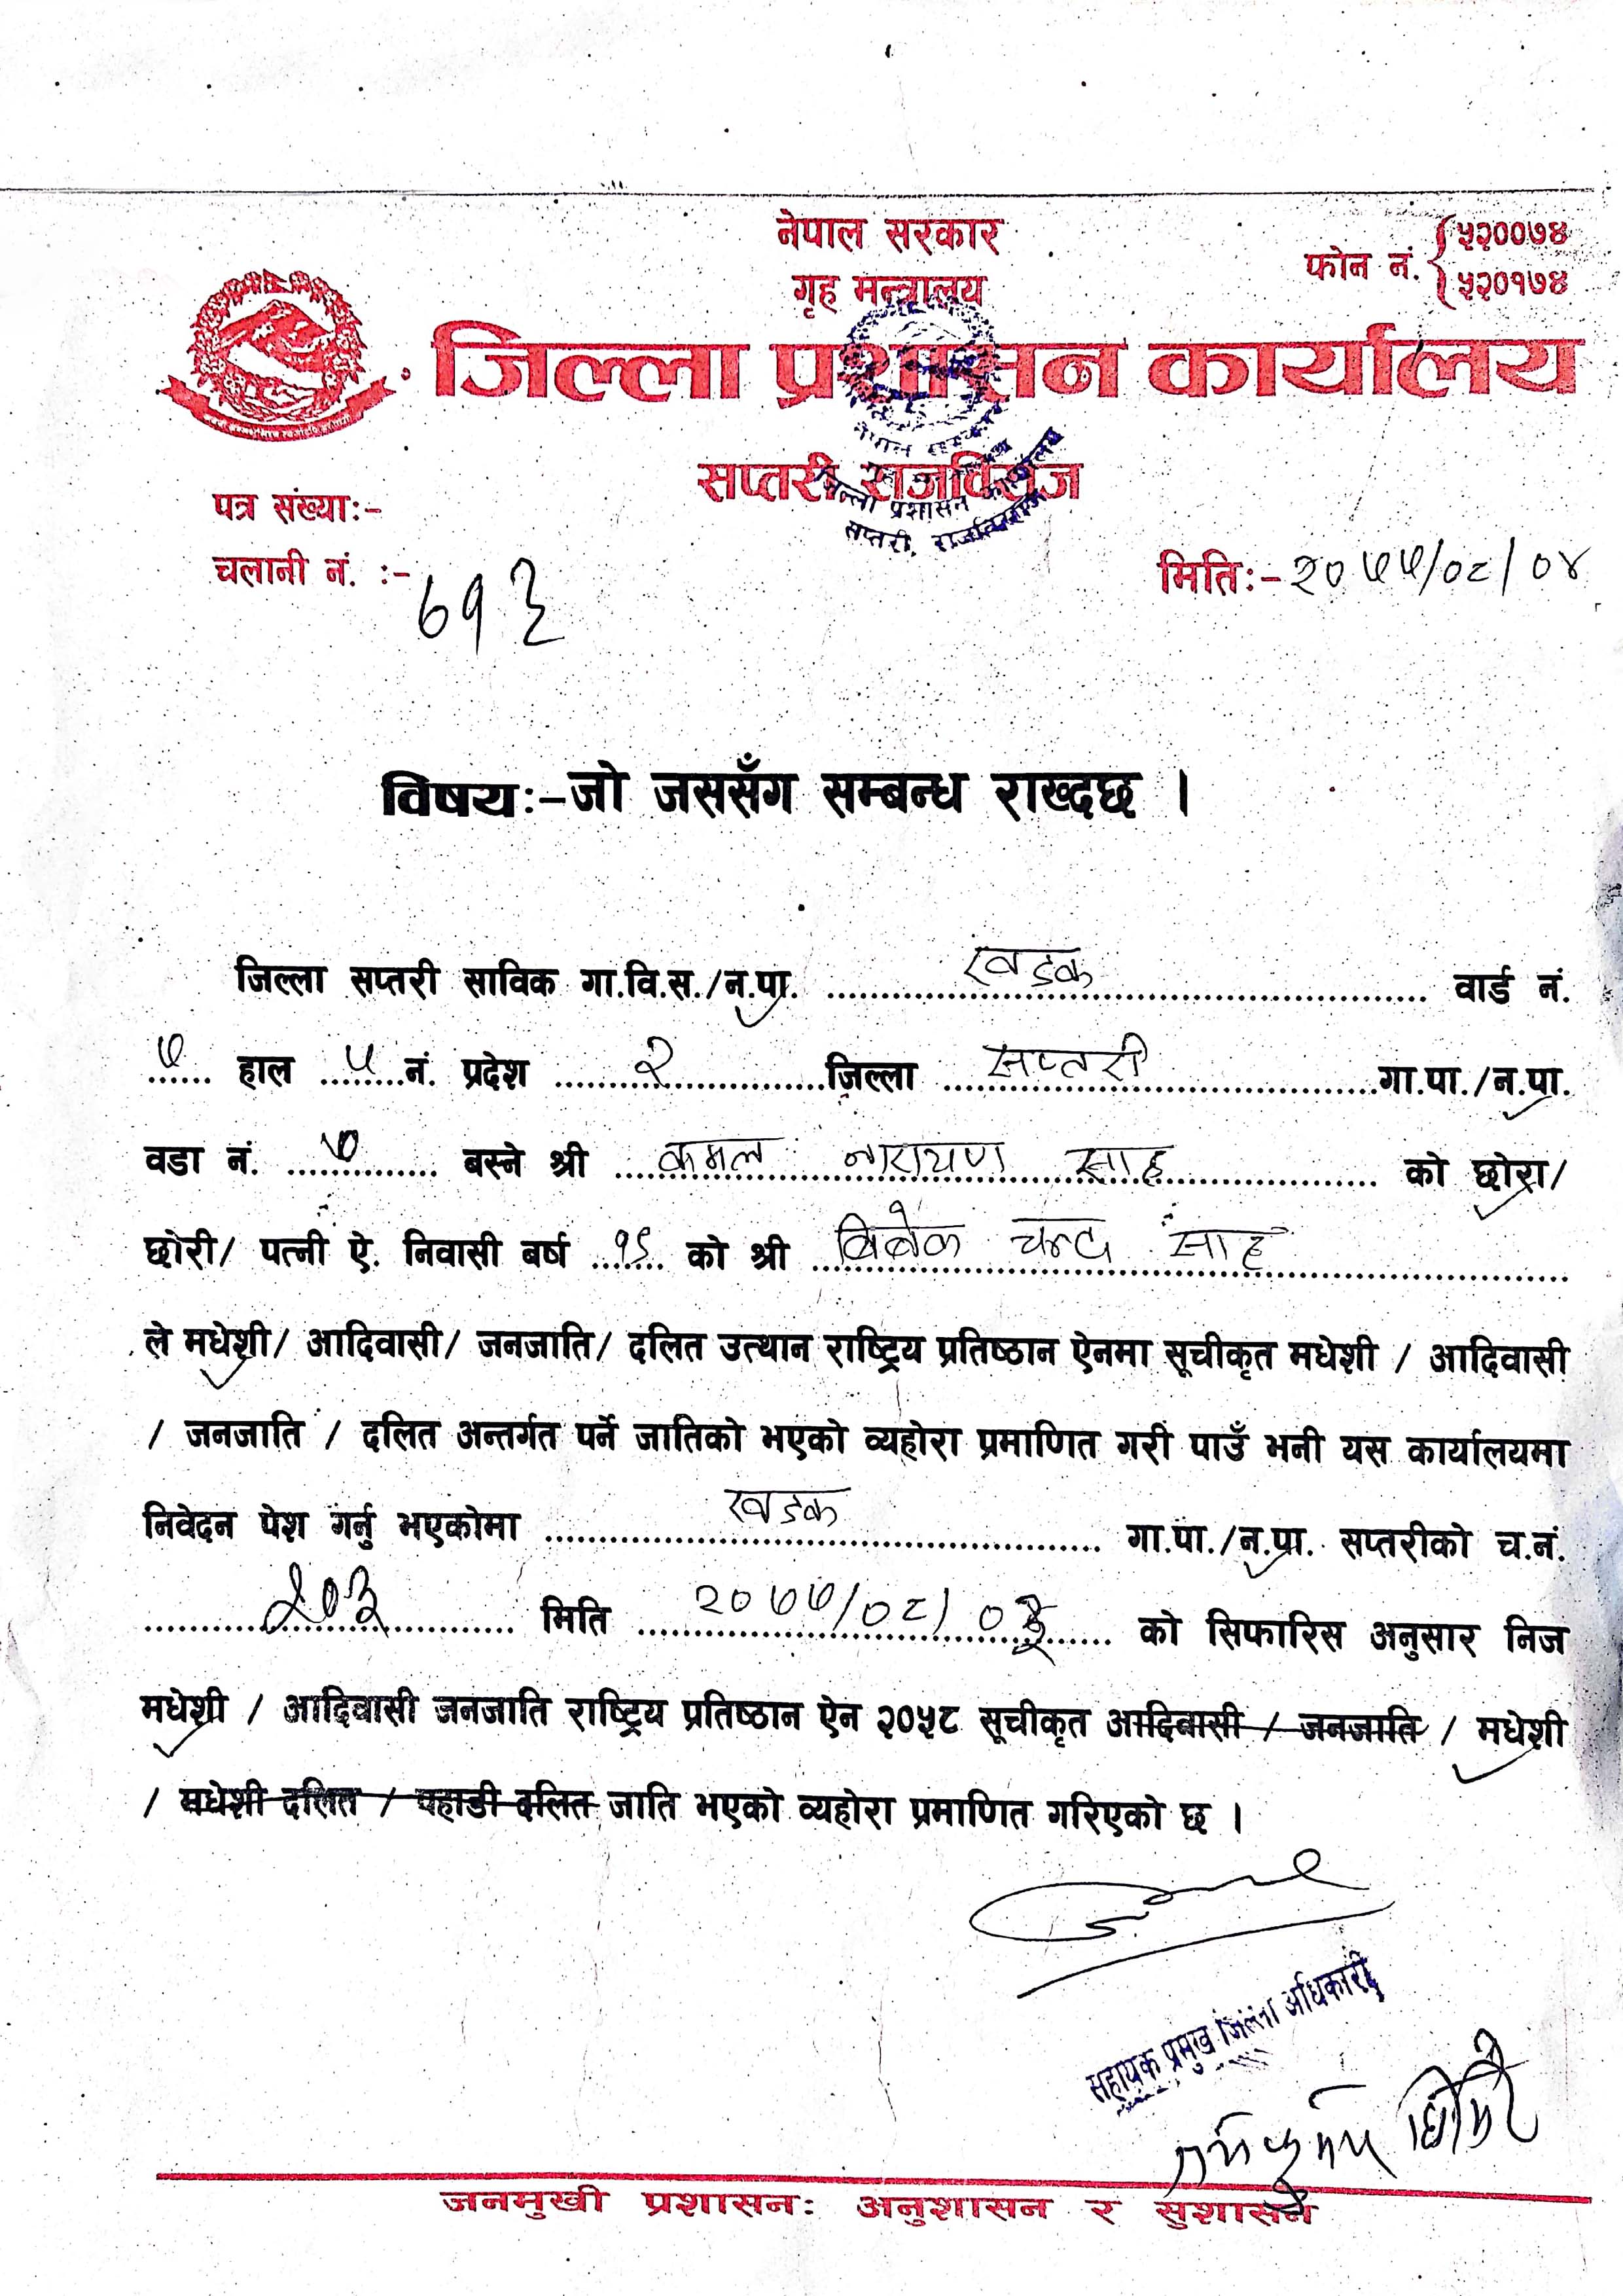 नेपाल सरकार
गृह मन्त्रालय
फोन नं. ५२००७४
५२०१७४
जिल्ला प्रशासन कार्यालय
सप्तरी, राजविराज
नेपाल सरकार
जिल्ला प्रशासन कार्यालय
सप्तरी, राजविराज
पत्र संख्याः-
चलानी नं. :- ७१३
मितिः- २०७७/०८/०४
विषयः-जो जससँग सम्बन्ध राख्दछ ।
जिल्ला सप्तरी साविक गा.वि.स./न.पा. खडक वार्ड नं.
७ हाल ५ नं. प्रदेश २ जिल्ला सप्तरी गा.पा./न.पा.
वडा नं. ७ बस्ने श्री कमल नारायण साह को छोरा/
छोरी/ पत्नी ऐ. निवासी बर्ष १९ को श्री बिबेक चन्द्र साह
ले मधेशी/ आदिवासी/ जनजाति/ दलित उत्थान राष्ट्रिय प्रतिष्ठान ऐनमा सूचीकृत मधेशी / आदिवासी
/ जनजाति / दलित अन्तर्गत पर्ने जातिको भएको व्यहोरा प्रमाणित गरी पाउँ भनी यस कार्यालयमा
निवेदन पेश गर्नु भएकोमा खडक गा.पा./न.पा. सप्तरीको च.नं.
२०३ मिति २०७७/०८/०३ को सिफारिस अनुसार निज
मधेशी / आदिवासी जनजाति राष्ट्रिय प्रतिष्ठान ऐन २०५८ सूचीकृत आदिवासी / जनजाति / मधेशी
/ मधेशी दलित / पहाडी दलित जाति भएको व्यहोरा प्रमाणित गरिएको छ ।
सहायक प्रमुख जिल्ला अधिकारी
जनमुखी प्रशासनः अनुशासन र सुशासन